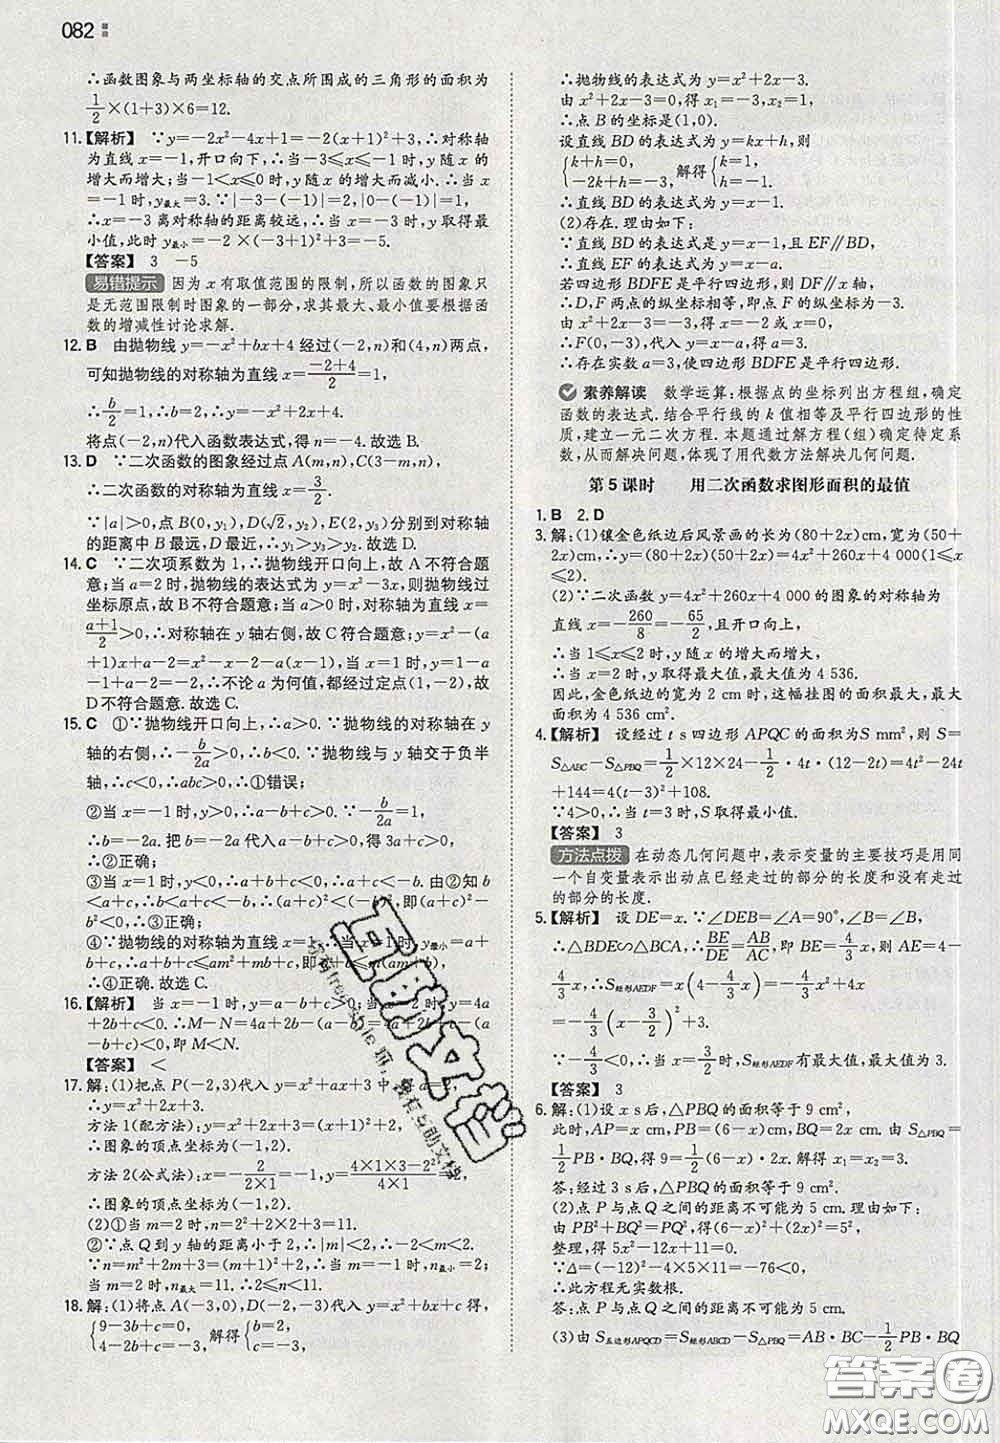 082
∴函数图象与两坐标轴的交点所围成的三角形的面积为
1/2×(1+3)×6=12.
11.【解析】 ∵y=-2x²-4x+1=-2(x+1)²+3,∴对称轴
为直线x=-1,开口向下,∴当-3≤x≤-1时,y随x的
增大而增大;当-1<x≤0时,y随x的增大而减小.∴当x
=-1时,y最大=3.∵|-3-(-1)|=2,|0-(-1)|=1,
∴x=-3离对称轴的距离较远,∴当x=-3时,y取得最
小值,此时y最小=-2×(-3+1)²+3=-5.
【答案】 3 -5
易错提示 因为x有取值范围的限制,所以函数的图象只
是无范围限制时图象的一部分,求其最大、最小值要根据函
数的增减性讨论求解.
12. B 由抛物线y=-x²+bx+4经过(-2,n)和(4,n)两点,
可知抛物线的对称轴为直线x=(-2+4)/2=1,
∴b/2=1,∴b=2,∴y=-x²+2x+4.
将点(-2,n)代入函数表达式,得n=-4.故选B.
13. D ∵二次函数的图象经过点A(m,n),C(3-m,n),
∴二次函数的对称轴为直线x=3/2.
∵|a|>0,点B(0,y₁),D(√2,y₂),E(2,y₃)分别到对称轴
的距离中B最远,D最近,∴y₁>y₃>y₂.故选D.
14. C ∵二次项系数为1,∴抛物线开口向上,故A不符合题
意;当a=2时,抛物线的表达式为y=x²-3x,则抛物线过
坐标原点,故B不符合题意;当a>0时,抛物线的对称轴x=
(a+1)/2>0,∴对称轴在y轴右侧,故C符合题意;∵y=x²-(a
+1)x+a-2=x²-ax-x+a-2=x²-x-2-a(x-1),∴当x
-1=0时,x=1,y=-2,∴不论a为何值,都经过定点(1,-2),故
D不符合题意.故选C.
15. C ①∵抛物线开口向上,∴a>0.∵抛物线的对称轴在y
轴的右侧,∴-b/2a>0,∴b<0.∵抛物线与y轴交于负半
轴,∴c<0,∴abc>0,∴①错误;
②当x=-1时,y>0,∴a-b+c>0.∵-b/2a=1,
∴b=-2a.把b=-2a代入a-b+c>0中,得3a+c>0,
∴②正确;
③当x=1时,y<0,∴a+b+c<0,∴a+c<-b.由②知b
<a+c,∴|a+c|<|b|,∴(a+c)²<(-b)²,即(a+c)²<b²,
∴③正确;
④∵抛物线的对称轴为直线x=1,∴当x=1时,y最小=a+
b+c,∴a+b+c≤am²+mb+c,即a+b≤m(am+b),
∴④正确.故选C.
16.【解析】 当x=-1时,y=a-b+c>0,当x=2时,y=4a
+2b+c<0.∴M-N=4a+2b-(a-b)=4a+2b+c-(a-b
+c)<0,即M<N.
【答案】 <
17. 解:(1)把点P(-2,3)代入y=x²+ax+3中,得a=2,
∴y=x²+2x+3.
方法1(配方法):∵y=x²+2x+3=(x+1)²+2,
∴图象的顶点坐标为(-1,2).
方法2(公式法):x=-2/(2×1)=-1,y=(4×1×3-2²)/(4×1)=2,
∴图象的顶点坐标为(-1,2).
(2)①当m=2时,n=2²+2×2+3=11.
②∵点Q到y轴的距离小于2,∴|m|<2,∴-2<m<2.
∵n=m²+2m+3=(m+1)²+2,∴当m=-1时,n最小=2,
当m=2时,n最大=11,∴2≤n<11.
18. 解:(1)将点A(-3,0),D(-2,-3)代入y=x²+bx+c得,
{9-3b+c=0, 4-2b+c=-3, 解得{b=2, c=-3,
∴抛物线的表达式为y=x²+2x-3.
由x²+2x-3=0,得x₁=-3,x₂=1,
∴点B的坐标是(1,0).
设直线BD的表达式为y=kx+h,则
{k+h=0, -2k+h=-3, 解得{k=1, h=-1,
∴直线BD的表达式为y=x-1.
(2)存在.理由如下:
∵直线BD的表达式是y=x-1,且EF∥BD,
∴直线EF的表达式为y=x-a.
若四边形BDFE是平行四边形,则DF∥x轴,
∴D,F两点的纵坐标相等,即点F的纵坐标为-3,
∴F(0,-3),代入y=x-a,得a=3.
∴存在实数a=3,使四边形BDFE是平行四边形.
素养解读 数学运算:根据点的坐标列出方程组,确定
函数的表达式.结合平行线的k值相等及平行四边形的性
质,建立一元二次方程.本题通过解方程(组)确定待定系
数,从而解决问题,体现了用代数方法解决几何问题.
第5课时 用二次函数求图形面积的最值
1. B 2. D
3. 解:(1)镶金色纸边后风景画的长为(80+2x)cm,宽为(50+
2x)cm,∴y=(80+2x)(50+2x)=4x²+260x+4 000(1≤x
≤2).
(2)∵二次函数y=4x²+260x+4 000的图象的对称轴为
直线x=-260/8=-65/2,且开口向上,
∴当1≤x≤2时,y随x的增大而增大,
∴当x=2时,y取得最大值,最大值为4 536.
因此,金色纸边的宽为2 cm时,这幅挂图的面积最大,最大
面积为4 536 cm².
4.【解析】 设经过t s四边形APQC的面积为S mm²,则S=
S△ABC-S△PBQ=1/2×12×24-1/2·4t·(12-2t)=4t²-24t
+144=4(t-3)²+108.
∵4>0,∴当t=3时,S取得最小值.
【答案】 3
方法点拨 在动态几何问题中,表示变量的主要技巧是用同
一个自变量表示出动点已经走过的部分的长度和没有走过
的部分的长度.
5.【解析】 设DE=x.∵∠DEB=∠A=90°,∠B=∠B,
∴△BDE∽△BCA,∴BE/DE=AB/AC,即BE=4/3x.而AE=4-
4/3x,∴S矩形AEDF=x(4-4/3x)=-4/3x²+4x
=-4/3(x-3/2)²+3,
∵-4/3<0,∴当x=3/2时,S矩形AEDF有最大值,最大值为3.
【答案】 3
6. 解:(1)设x s后,△PBQ的面积等于9 cm²,
此时,AP=x cm,PB=(6-x)cm,BQ=2x cm.由S△PBQ=
1/2PB·BQ,得9=1/2(6-x)·2x.解得x₁=x₂=3.
答:经过3 s后,△PBQ的面积等于9 cm².
(2)点P与点Q之间的距离不可能为5 cm.理由如下:
由PB²+BQ²=PQ²,得(6-x)²+(2x)²=5²,
整理,得5x²-12x+11=0.
∵Δ=(-12)²-4×5×11=-76<0,
∴此方程无实数根.
答:点P与点Q之间的距离不可能为5 cm.
(3)由S五边形APQCD=S矩形ABCD-S△PBQ=AB·BC-1/2PB·BQ
答案圈
MXQE.COM